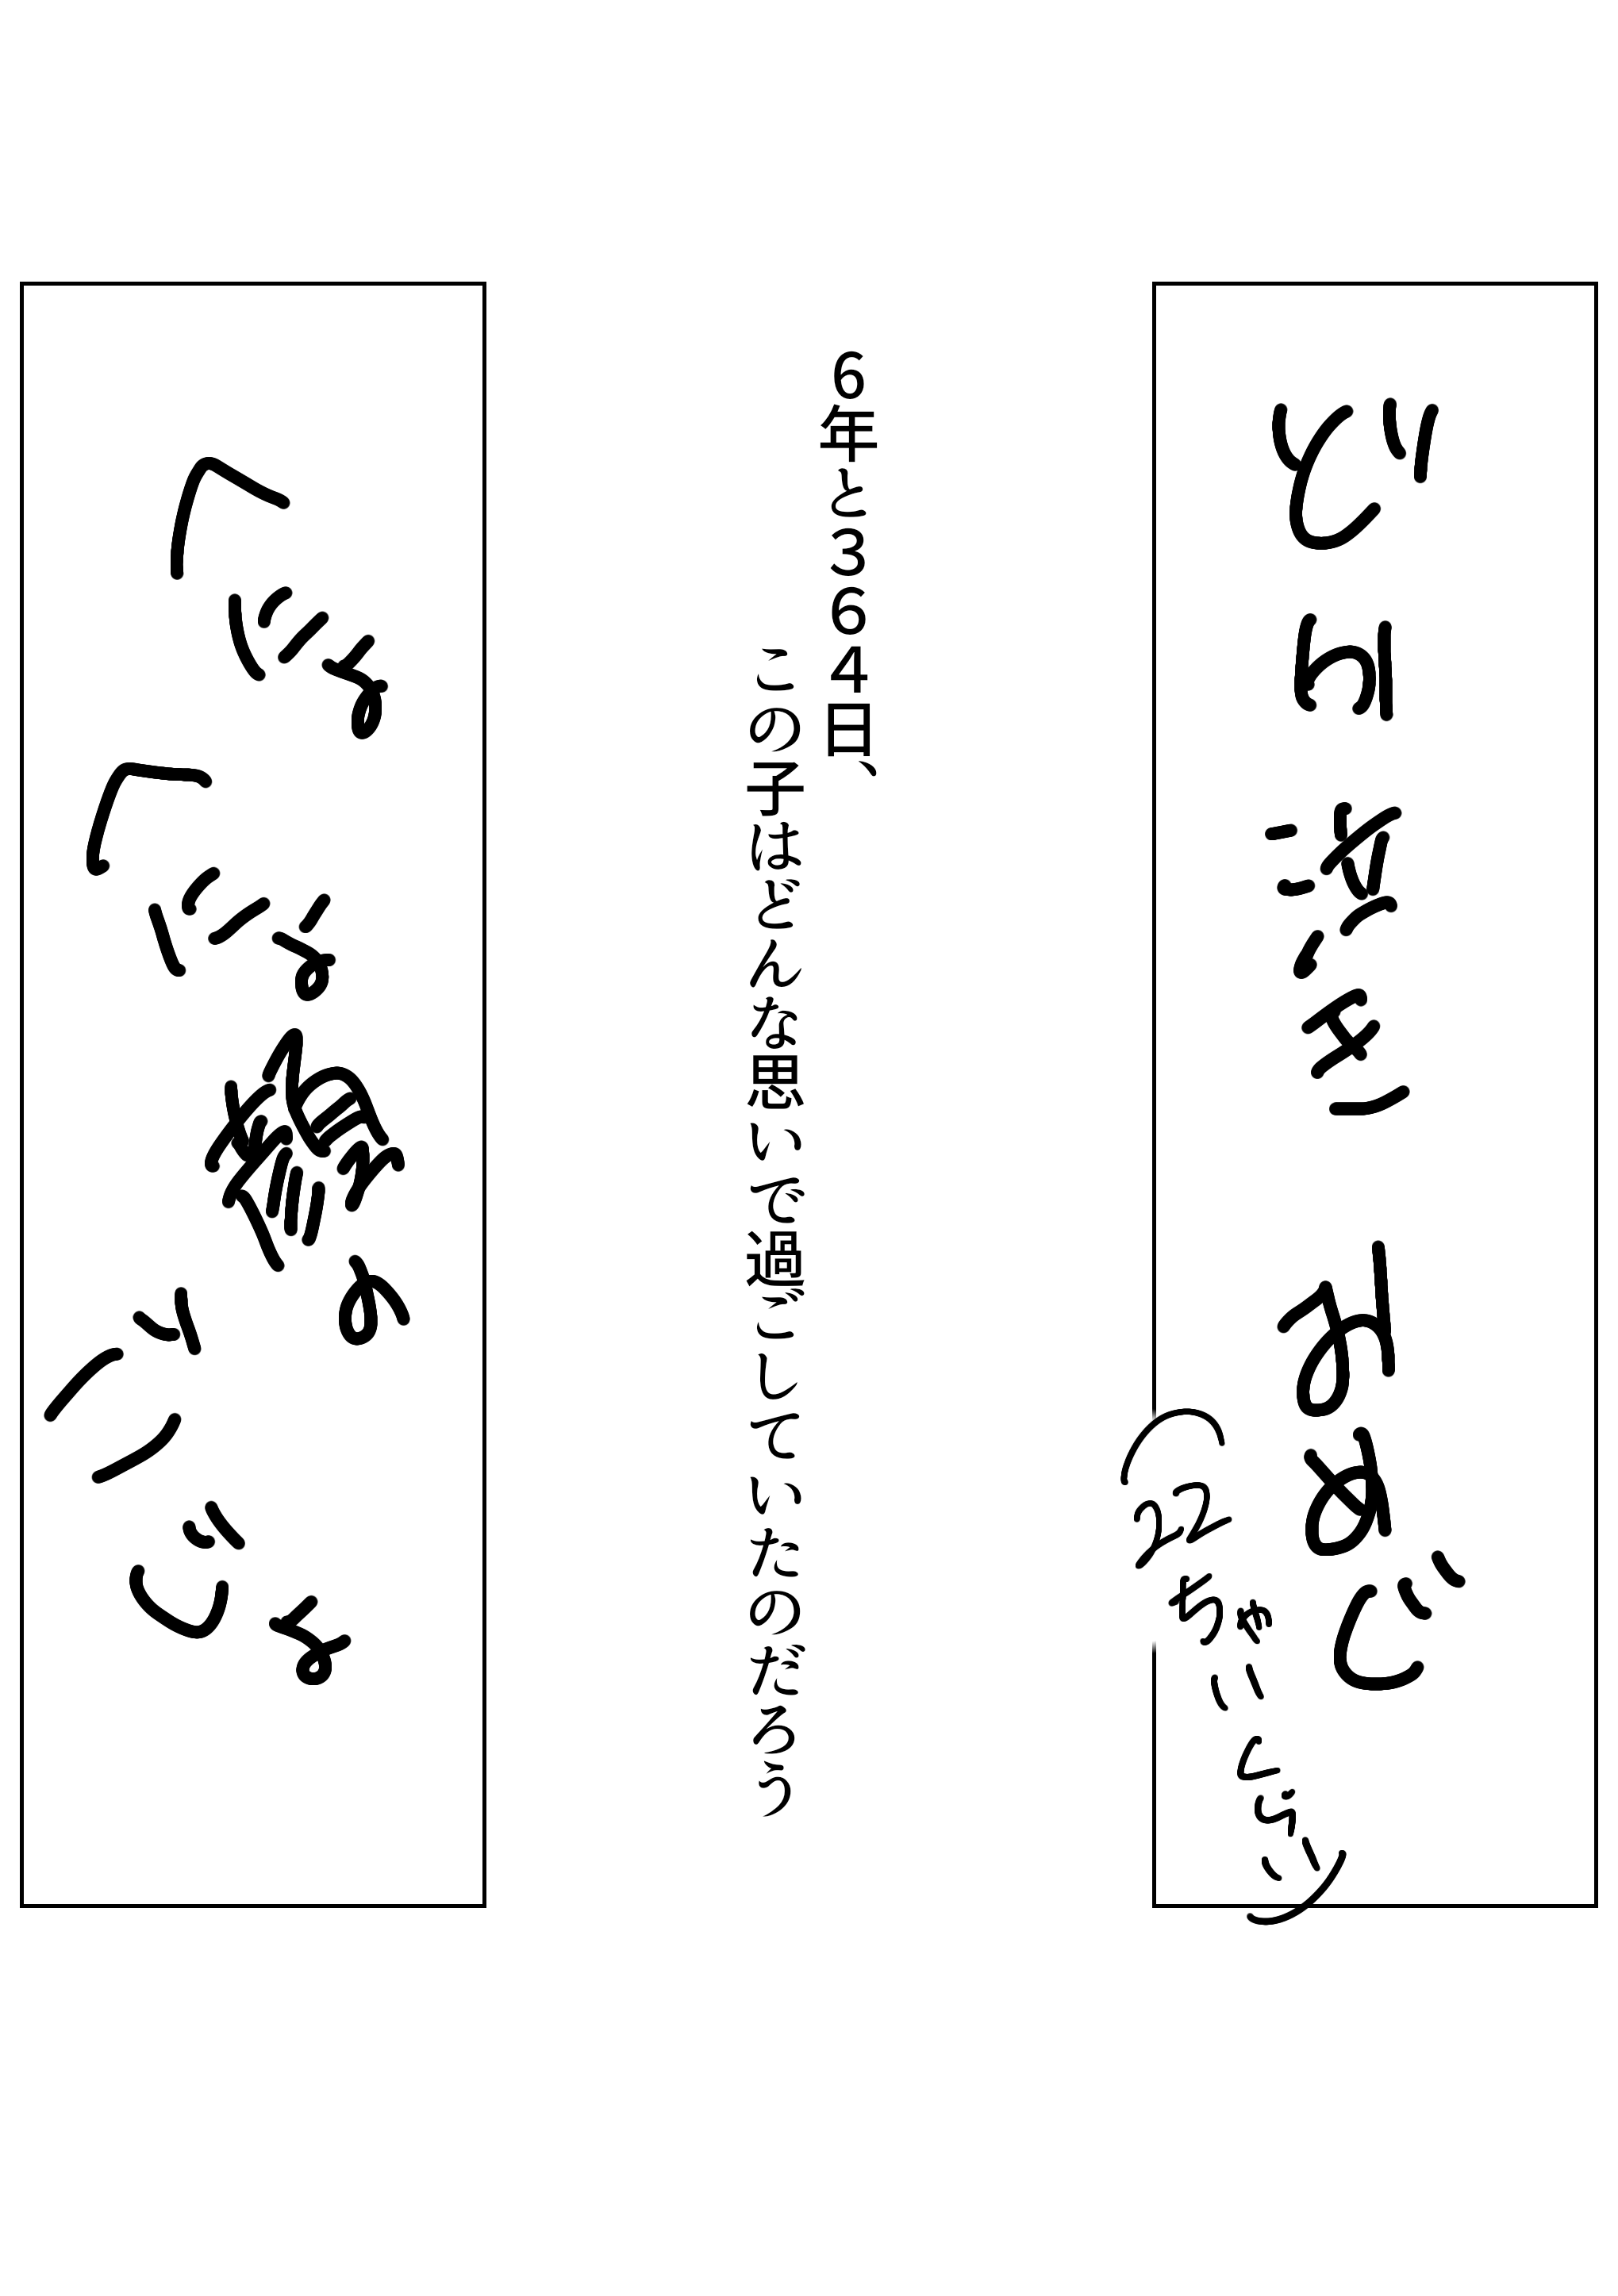 泣き みめじ
(22ちゃいくらい)
6年と364日、
この子はどんな思いで過ごしていたのだろう
へにょへにょ顔の
ごじょ